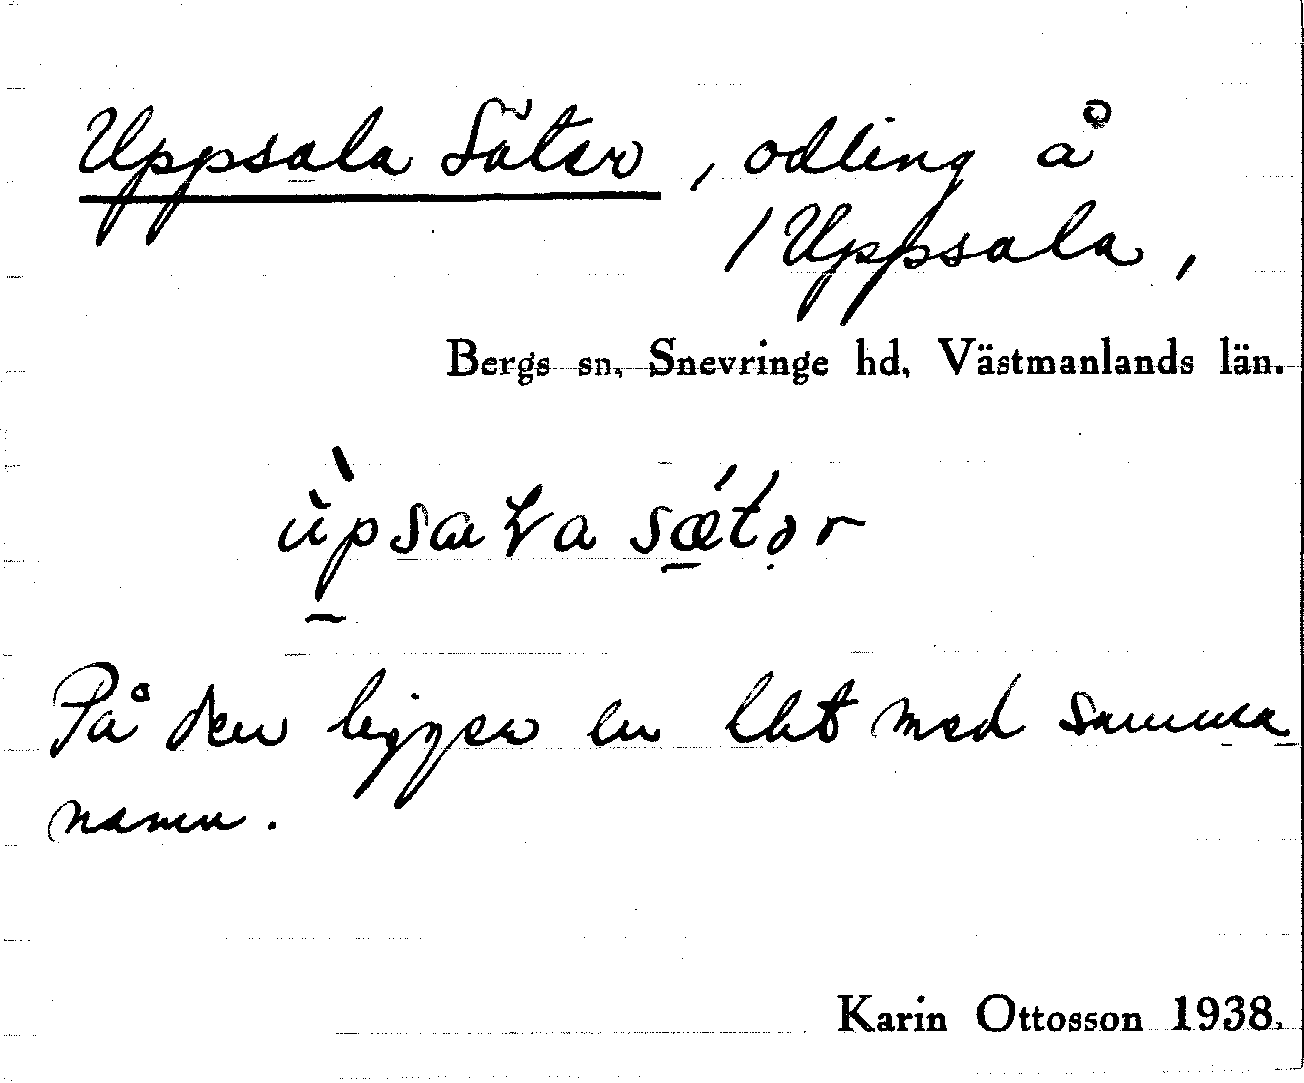 Uppsala Säter, odling å
/ Uppsala,
Bergs sn, Snevringe hd, Västmanlands län.
På den ligger en lht med samma
namn.
Karin Ottosson 1938.